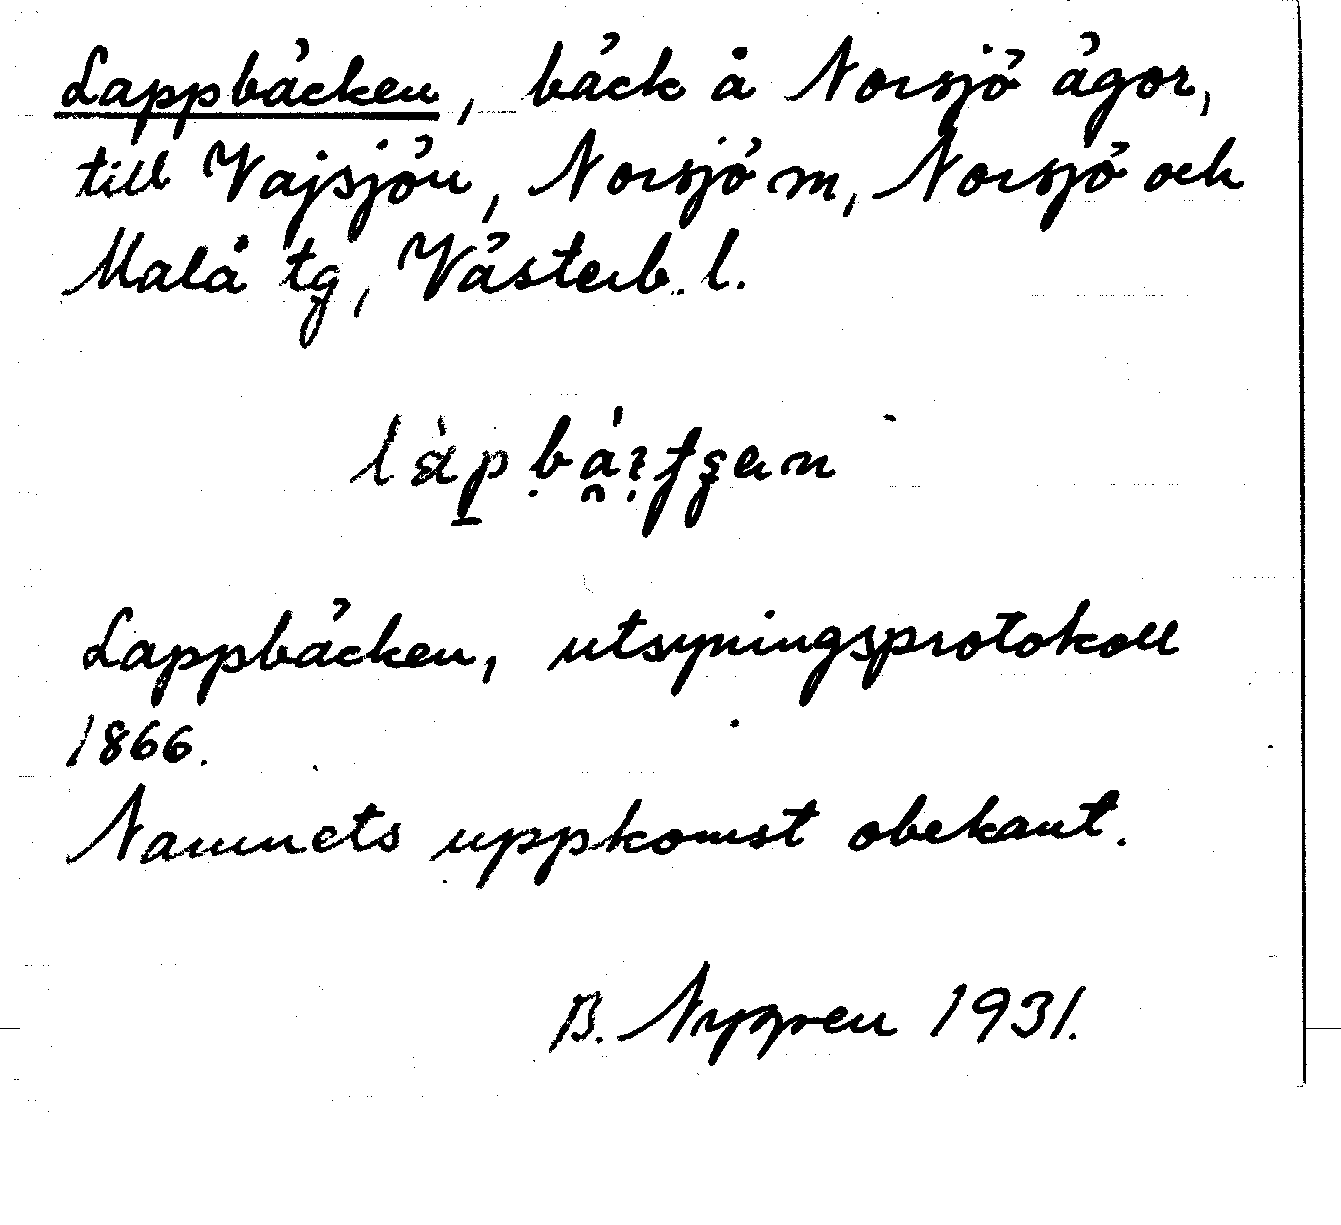 Lappbäcken, bäck å Norsjö ägor,
till Vajsjön, Norsjö m, Norsjö och
Malå tg, Västerb. l.
Lappbäcken, utsyningsprotokoll
1866.
Namnets uppkomst obekant.
B. Nygren 1931.